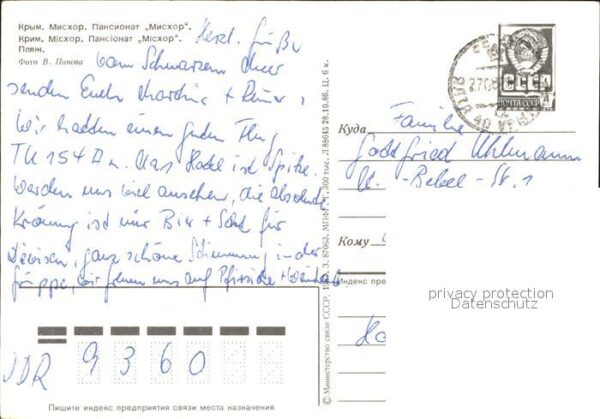 Крым. Мисхор. Пансионат „Мисхор".
Крим. Місхор. Пансіонат „Місхор".
Пляж.
Фото В. Панова
Herzl. Grüße
vom Schwarzen Meer
senden Euch Martina +
Wir hatten einen guten Flug
TU 154 Das Hotel ist Spitze.
Werden uns viel ansehen, die absolute
Krönung ist nur Bier + Sekt für
Devisen, ganz schöne Stimmung in der
Gruppe, wir freuen uns auf Pfirsiche +
DDR 9360
Пишите индекс предприятия связи места назначения
© Министерство связи СССР. З. 87063. МПФГ. 300 тыс. Л 88645 28.10.86. Ц. 6 к.
СССР
ПОЧТА СССР
Куда
Familie
Gottfried Uhlmann
-Bebel-Str. 1
Кому
Индекс пре
privacy protection
Datenschutz